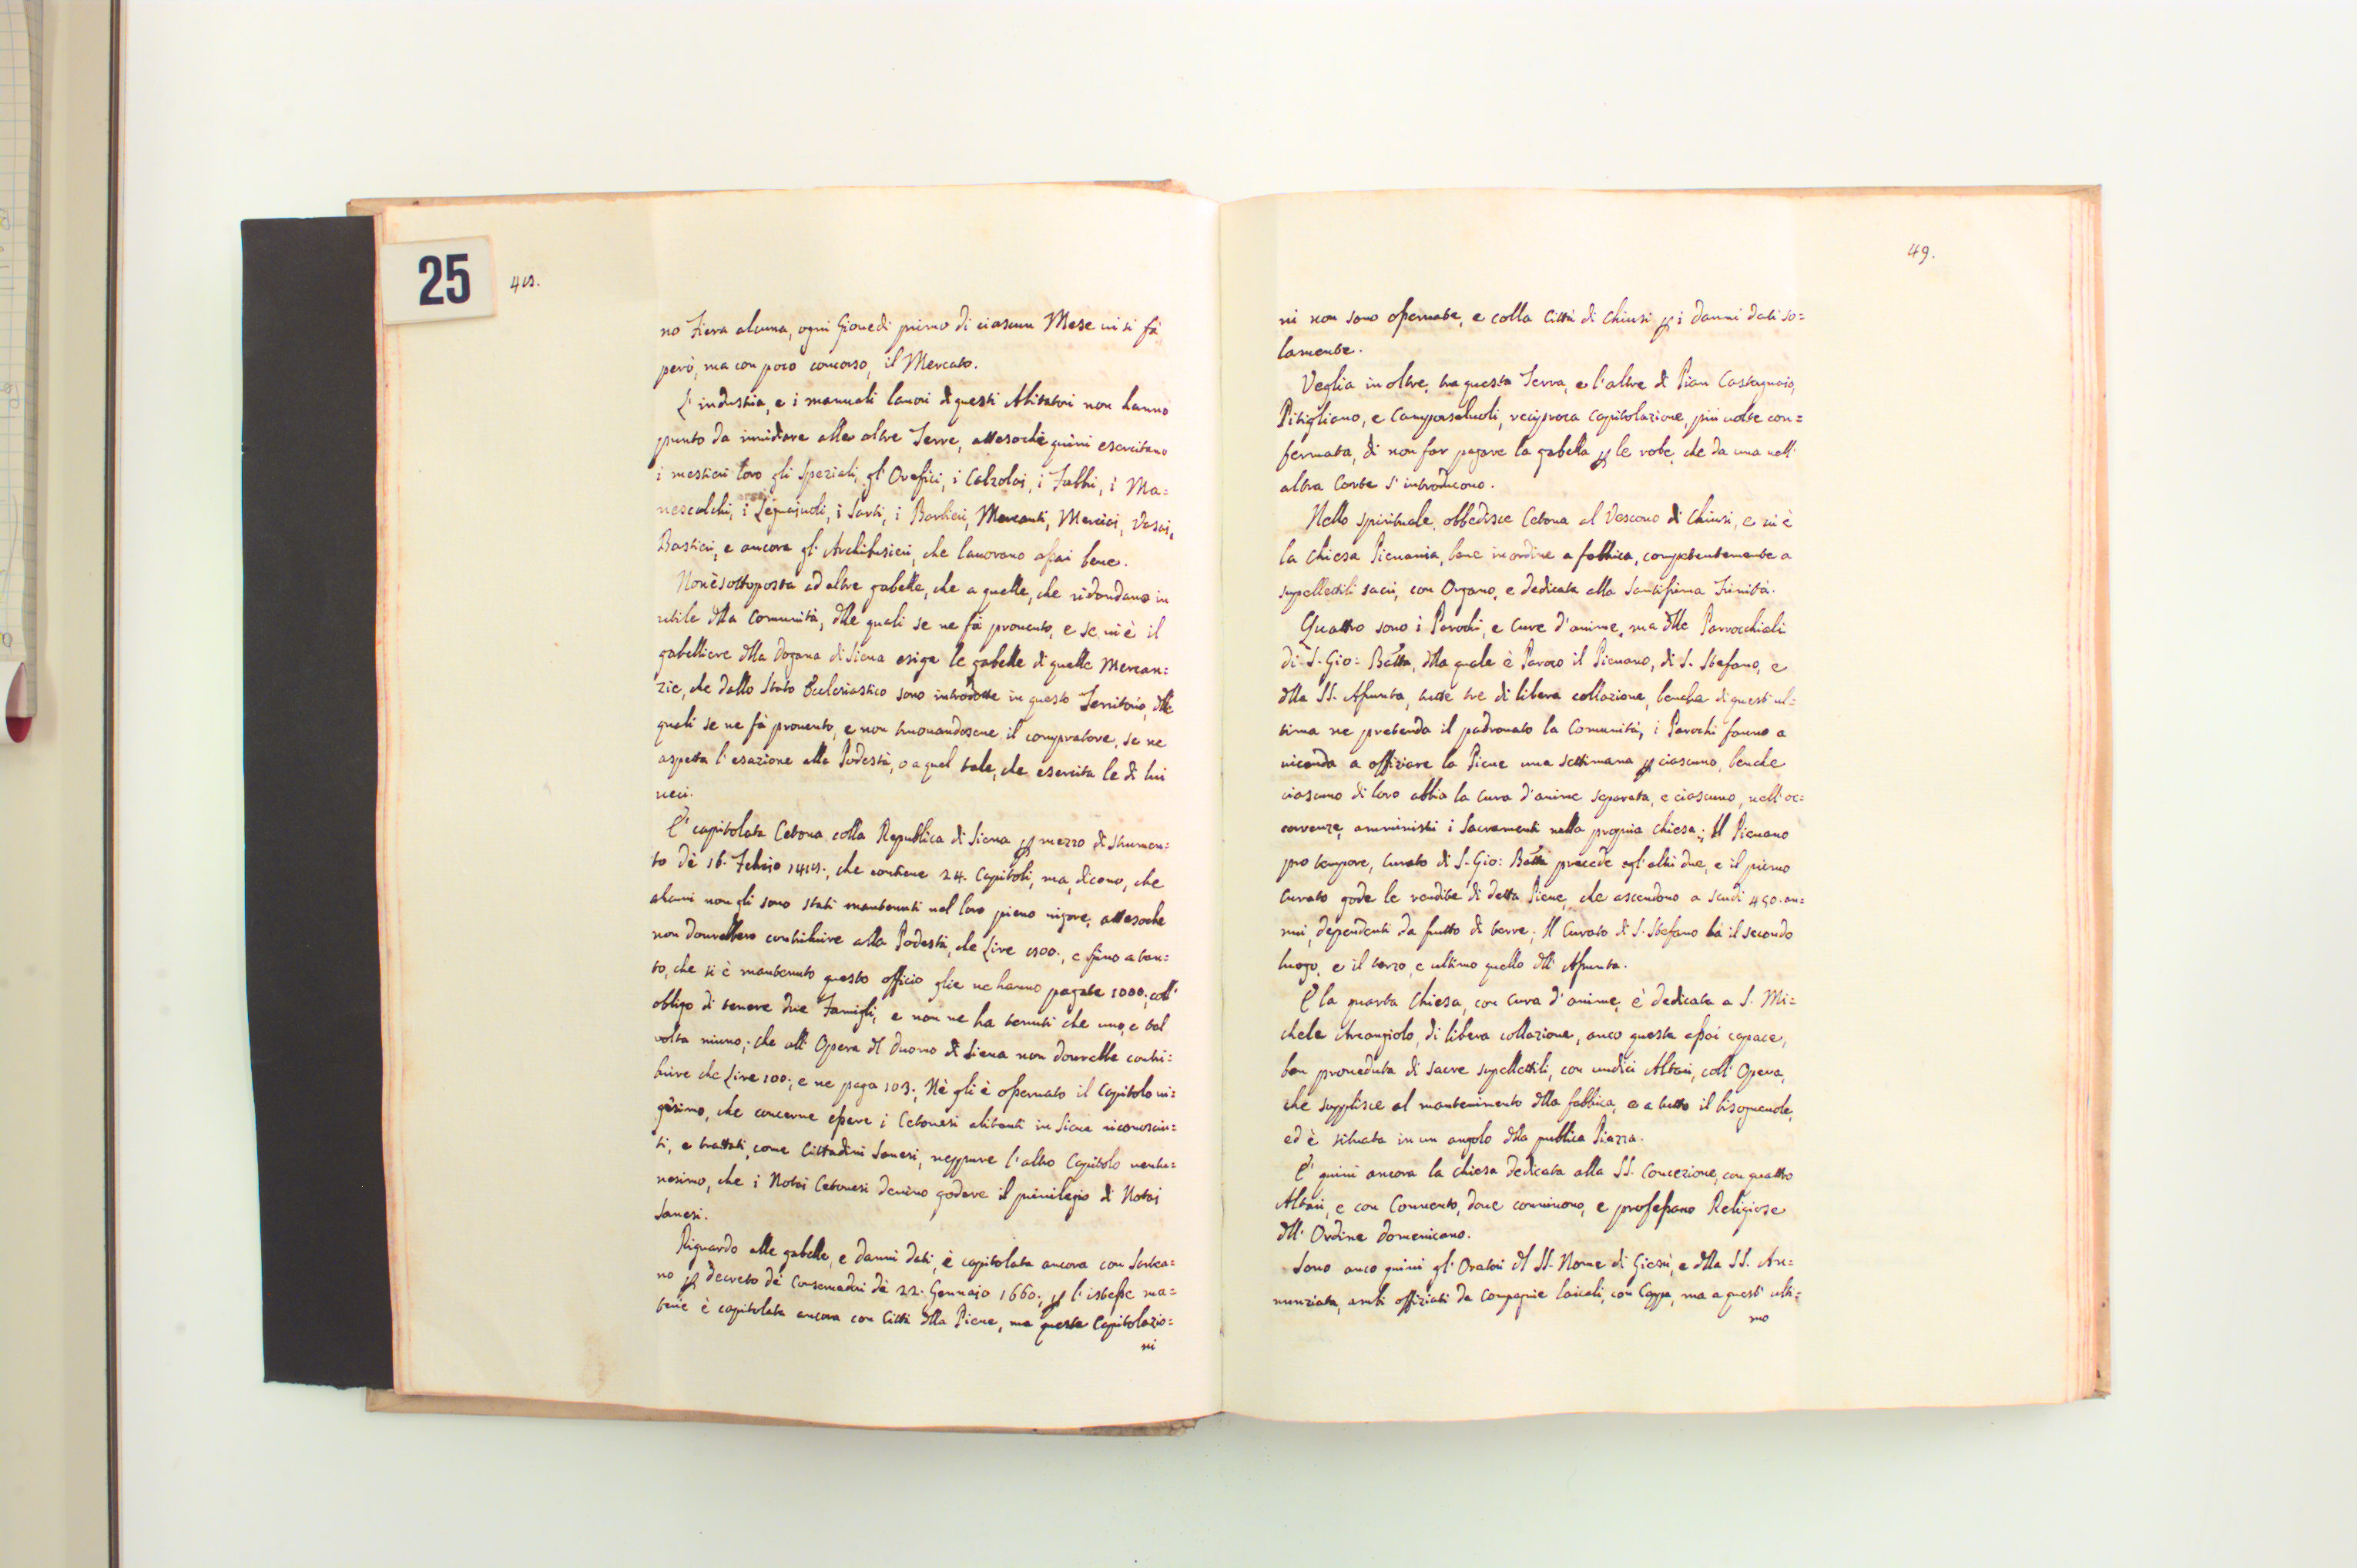 25
48.
no Fiera alcuna, ogni Giovedì primo di ciascun Mese vi si fà
però, ma con poco concorso, il Mercato.
L'industria, e i manuali lavori di questi Abitatori non hanno
punto da invidiare alle altre Terre, attesochè quivi esercitano
i mestieri loro gli Speziali, gl'Orefici, i Calzolai, i Fabbri, i Ma=
nescalchi, i Legnajuoli, i Sarti, i Barbieri, Mercanti, Merciai, Vasai,
Bastieri, e ancora gl'Archibusieri, che lavorano assai bene.
Non è sottoposta ad altre gabelle, che a quelle, che ridondano in
utile dlla Comunità, dlle quali se ne fà provento, e se vi è il
gabelliere dlla Dogana di Siena esige le gabelle di quelle Mercan=
zie, che dallo Stato Ecclesiastico sono introdotte in questo Territorio, dlle
quali se ne fà provento, e non truovandosene il compratore, se ne
aspetta l'esazione alla Podestà, o a quel tale, che esercita le di lui
veci.
E' capitolata Cetona colla Republica di Siena p mezzo di Strumen=
to dè 16. Febraio 1418., che contiene 24. Capitoli, ma, dicono, che
alcuni non gli sono stati mantenuti nel loro pieno vigore, attesoche
non dovrebbero contribuire alla Podestà, che Lire 800., e sino a tan=
to, che si è mantenuto questo officio glie ne hanno pagate 1000., coll'
obligo di tenere due Famigli, e non ne ha tenuti che uno, e tal
volta niuno; che all'Opera dl Duomo di Siena non dovrebbe contri=
buire che Lire 100., e ne paga 103.; Nè gli è osservato il Capitolo vi=
gesimo, che concerne essere i Cetonesi abitanti in Siena riconosciu=
ti, e trattati, come Cittadini Sanesi, neppure l'altro Capitolo ventu=
nesimo, che i Notai Cetonesi devino godere il privilegio di Notai
Sanesi.
Riguardo alle gabelle, e danni dati, è capitolata ancora con Sartea=
no p decreto dè Conservadori dè 22. Gennajo 1660.; p l'istesse ma=
terie è capitolata ancora con Città dlla Pieve, ma queste Capitolazio=
ni
49.
ni non sono osservate, e colla Città di Chiusi p i danni dati so=
lamente.
Veglia in oltre, tra questa Terra, e l'altre di Pian Castagnaio,
Pitigliano, e Camporsevoli, reciproca Capitolazione, più volte con=
fermata, di non far pagare la gabella p le robe, che da una nell'
altra Corte s'introducono.
Nello spirituale, obbedisce Cetona al Vescovo di Chiusi, e vi è
la Chiesa Pievania, bene in ordine a fabbrica, competentemente a
supellettili sacri, con Organo, e dedicata alla Santissima Trinità.
Quattro sono i Parochi, e Cure d'anime, ma dlle Parrocchiali
di S. Gio: Batta, dlla quale è Paroco il Pievano, di S. Stefano, e
dlla SS. Assunta, tutte tre di libera collazione, benche di quest'ul=
tima ne pretenda il padronato la Comunità, i Parochi fanno a
vicenda a offiziare la Pieve una settimana p ciascuno, benche
ciascuno di loro abbia la cura d'anime separata, e ciascuno, nell'oc=
correnze, amministri i Sacramenti nella propria Chiesa; Il Pievano
pro tempore, Curato di S. Gio: Batta precede agl'altri due, e il primo
Curato gode le rendite di detta Pieve, che ascendono a Scudi 450. an=
nui, dependenti da frutto di terre; Il Curato di S. Stefano hà il secondo
luogo, e il terzo, e ultimo quello dll'Assunta.
E la quarta Chiesa, con Cura d'anime, è dedicata a S. Mi=
chele Arcangiolo, di libera collazione, anco questa assai capace,
ben proveduta di sacre supellettili, con undici Altari, coll'Opera,
che supplisce al mantenimento dlla fabbrica, e a tutto il bisognevole,
ed è situata in un angolo dlla publica Piazza.
E' quivi ancora la Chiesa dedicata alla SS. Concezione, con quattro
Altari, e con Convento, dove convivono, e professano Religiose
dll'Ordine Domenicano.
Sono anco quivi gl'Oratori dl SS. Nome di Giesù, e dlla SS. An=
nunziata, ambi offiziati da Compagnie laicali, con Cappa, ma a quest'ulti=
mo